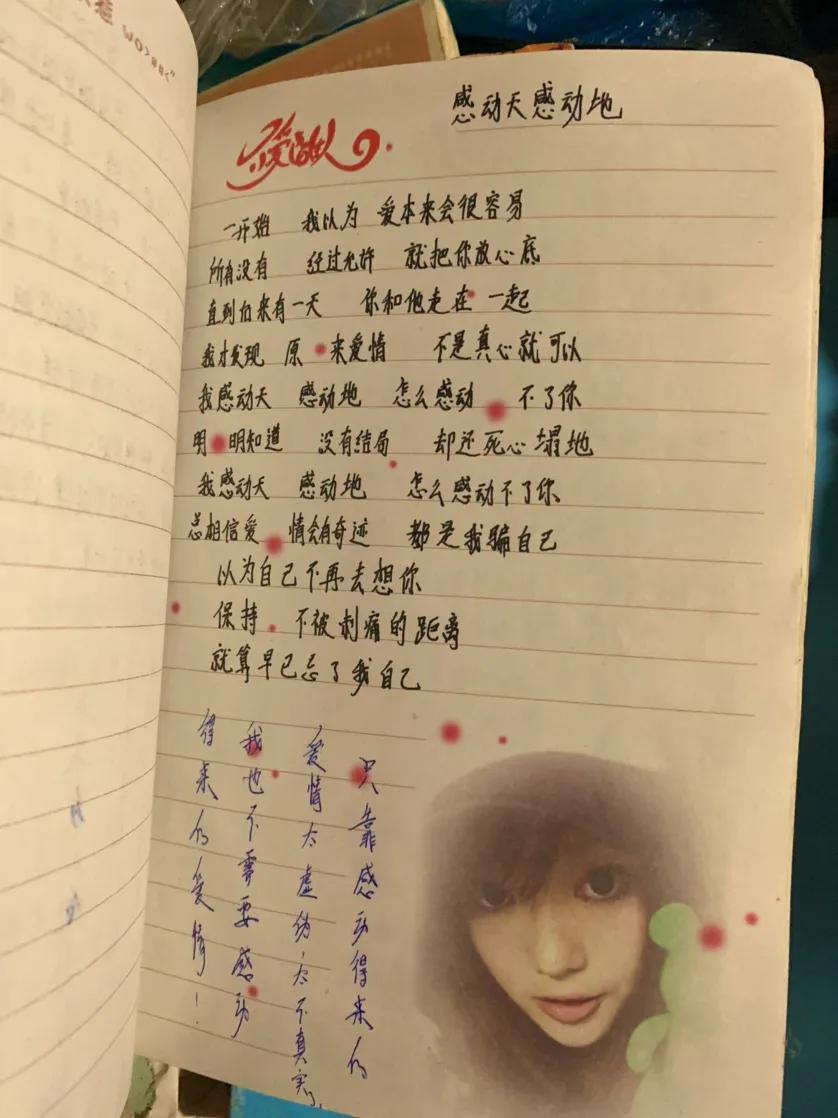 感动天感动地
一开始 我以为 爱本来会很容易
所有没有 经过允许 就把你放心底
直到后来有一天 你和他走在 一起
我才发现 原 来爱情 不是真心就可以
我感动天 感动地 怎么感动 不了你
明 明知道 没有结局 却还死心塌地
我感动天 感动地 怎么感动不了你
总相信爱 情会有奇迹 都是我骗自己
以为自己不再去想你
保持 不被刺痛的距离
就算早已忘了我自己
只靠感动得来的
爱情太虚伪，太不真实，
我也不需要感动
得来的爱情！